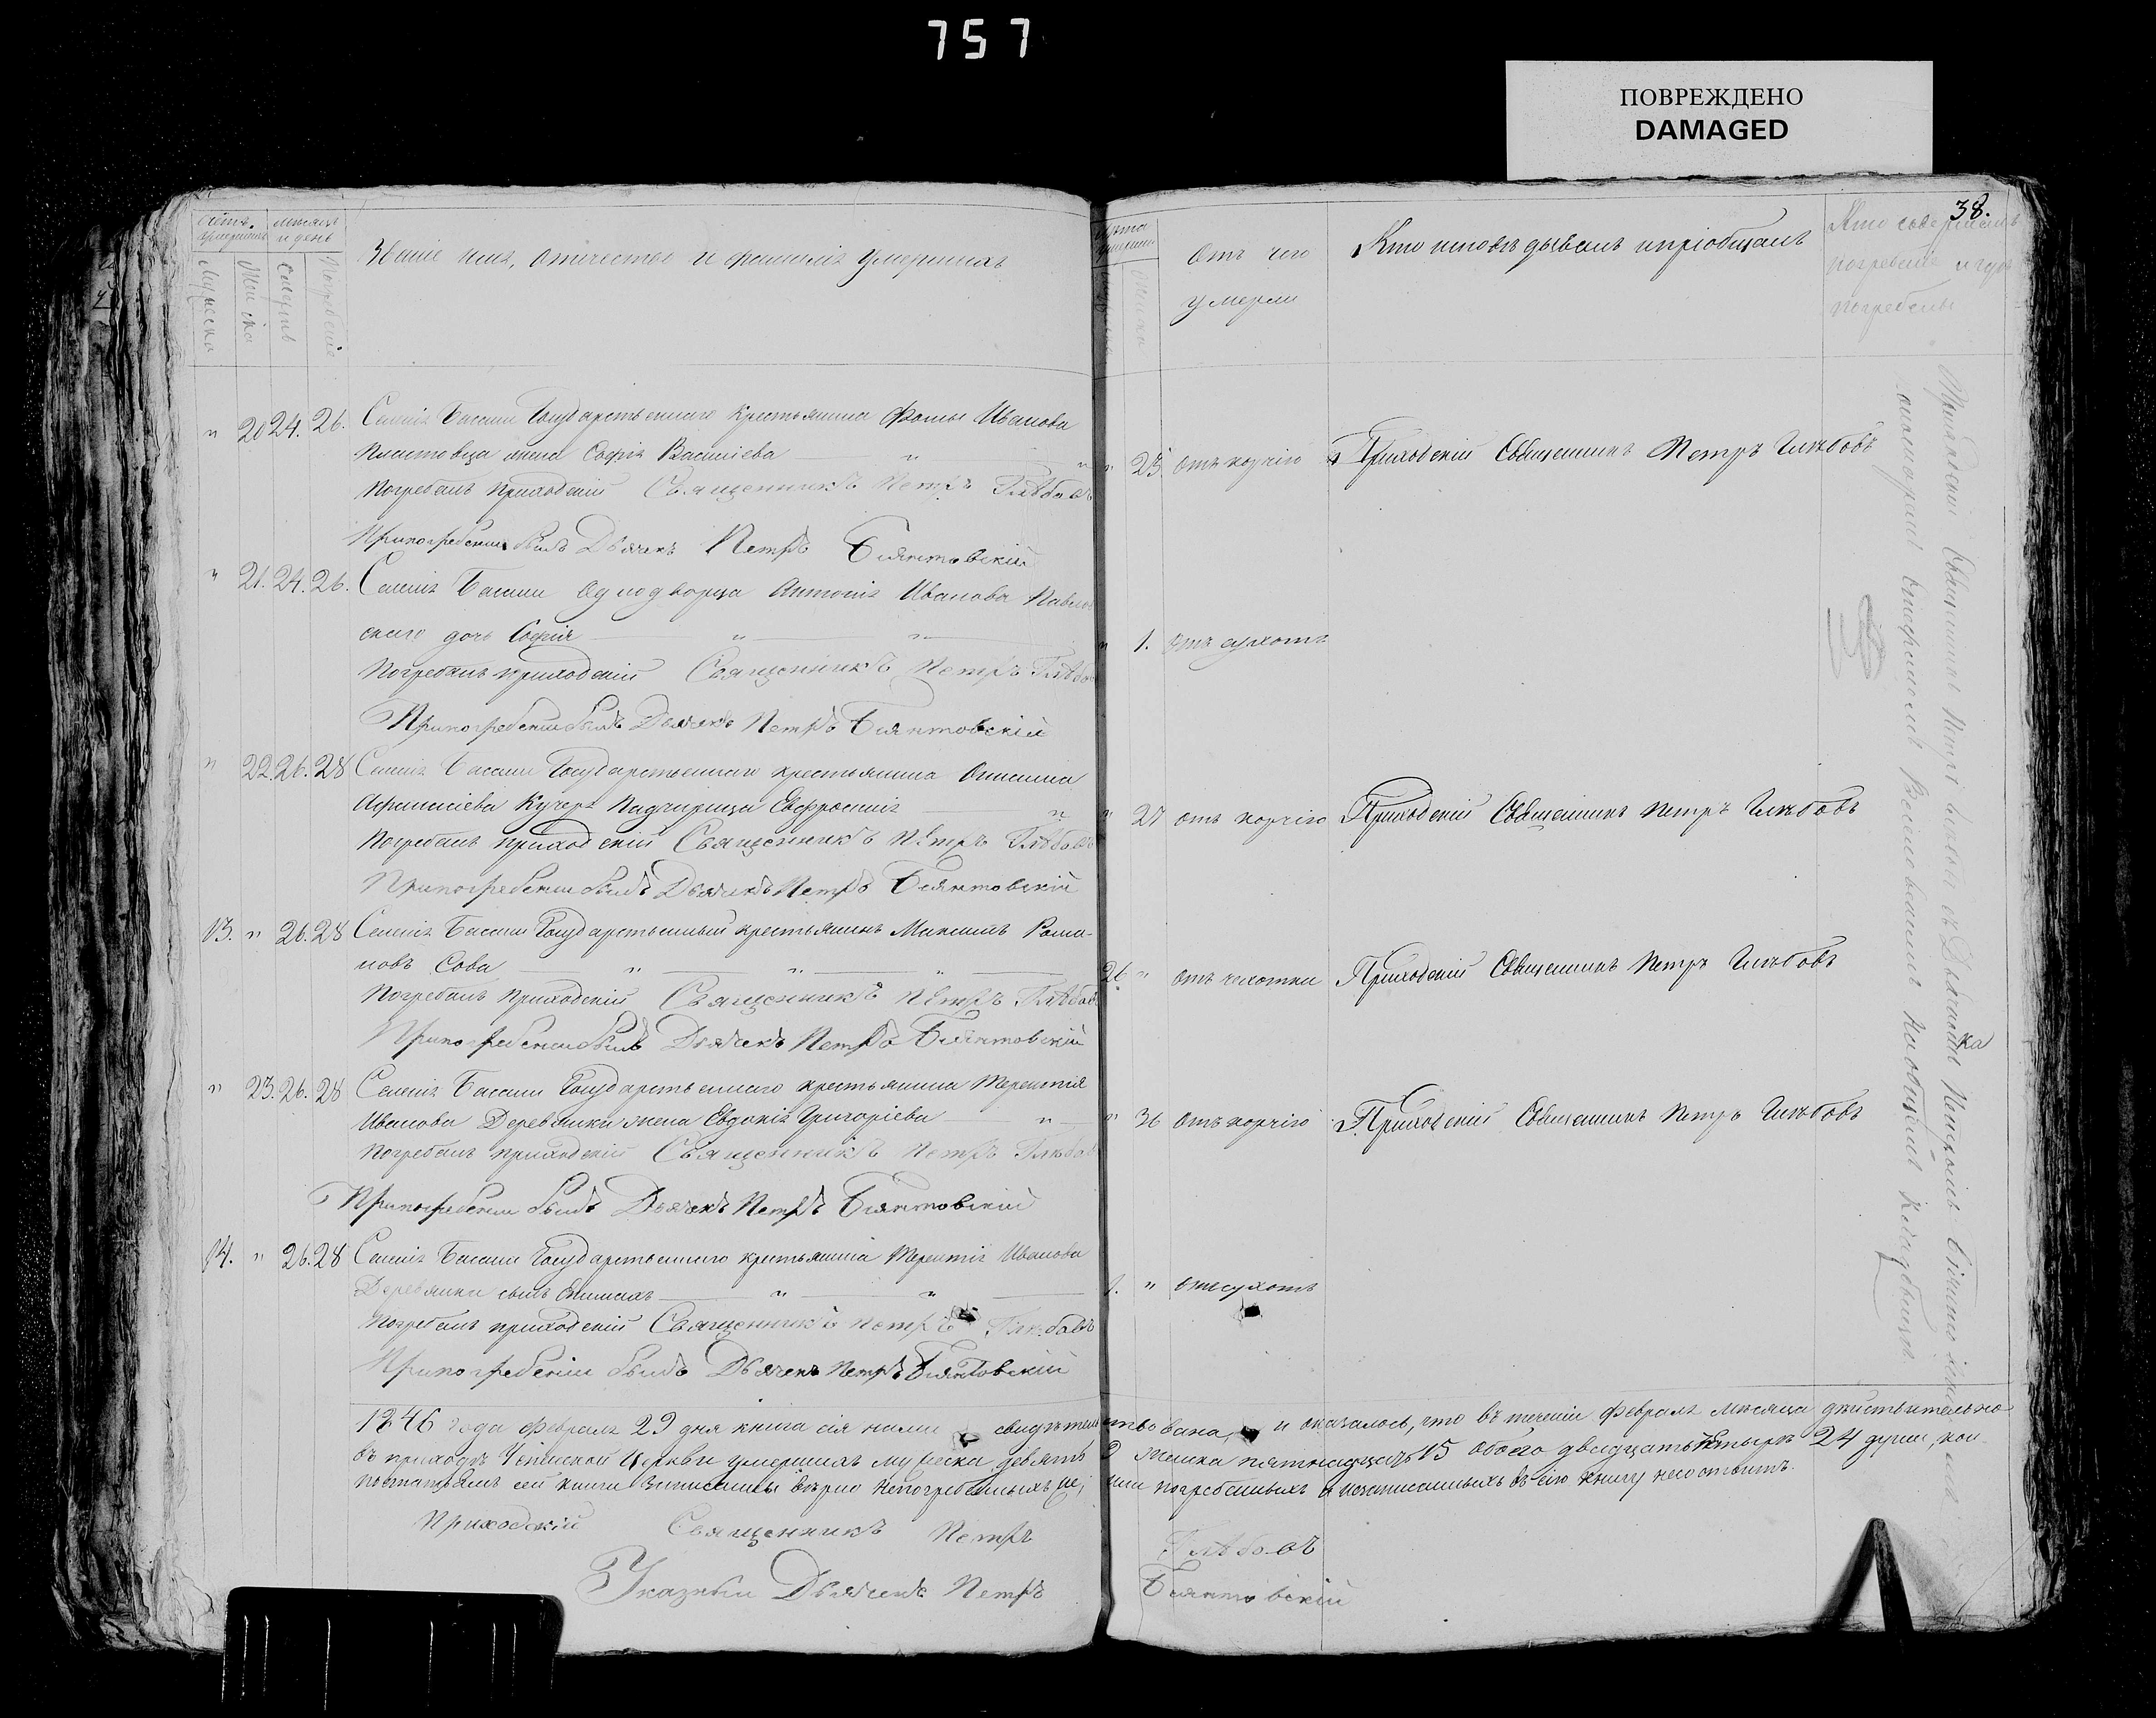 757
ПОВРЕЖДЕНО
DAMAGED
38.
Счетъ умершихъ
Мѣсяцъ и день
Мужеска
Женска
Смерть
Погребеніе
Званіе имя, отичество и фамилія умершихъ
Лѣта умершихъ
Отъ чего умерли
Кто исповѣдывалъ и пріобщалъ
Кто совершалъ погребеніе и гдѣ погребены
" 20 24. 26. Селенія Басани Государственнаго крестьянина Фомы Иванова
жена Софія Василіева " "
" 25. отъ корчію Приходскій Священникъ Петръ Глѣбовъ
Погребалъ приходскій Священникъ Петръ Глѣбовъ
При погребеніи былъ Дьячекъ Петръ
" 21. 24. 26. Селенія Басани Однодворца Антонія Иванова Павлов
скаго дочь Софія " "
" 1. отъ сухотъ
Погребалъ приходскій Священникъ Петръ Глѣбов
При погребеніи былъ Дьячекъ Петръ
" 22. 26. 28 Селенія Басани Государственнаго крестьянина
Афанасіева Кучера Падчирица Евфросинія "
" 27 отъ корчію Приходскій Священникъ Петръ Глѣбовъ
Погребалъ приходскій Священникъ Петръ Глѣбовъ
При погребеніи былъ Дьячекъ Петръ
13. " 26. 28 Селенія Басани Государственный крестьянинъ Максимъ Рома-
новъ Сова " " "
26. " отъ чахотки Приходскій Священникъ Петръ Глѣбовъ
Погребалъ приходскій Священникъ Петръ Глѣбов
При погребеніи былъ Дьячекъ Петръ
" 23. 26. 28 Селенія Басани Государственнаго крестьянина Терентія
Иванова Деревянки жена Евдокія Григоріева "
" 36 отъ корчію Приходскій Священникъ Петръ Глѣбовъ
Погребалъ приходскій Священникъ Петръ Глѣбов
При погребеніи былъ Дьячекъ Петръ
14. " 26. 28 Селенія Басани Государственнаго крестьянина Терентія Иванова
Деревянки сынъ " "
1. " отъ сухотъ
Погребалъ приходскій Священникъ Петръ Глѣбовъ
При погребеніи былъ Дьячекъ Петръ
Приходскій Священникъ Петръ Глѣбовъ съ
1846 года Февраля 29 дня книга сія нами свидѣтельствована, и оказалось, что въ теченіи Февраля мѣсяца дѣйствительно
въ приходѣ Успенской Церкви умершихъ мужеска девять 9 женска пятнадцать 15 обоего двадцать четыре 24 души, кои
по статьямъ сей книги записаны вѣрно непогребенныхъ же, или погребенныхъ и незаписанныхъ въ сію книгу несостоитъ.
Приходскій Священникъ Петръ Глѣбовъ
Указный Дьячекъ Петръ